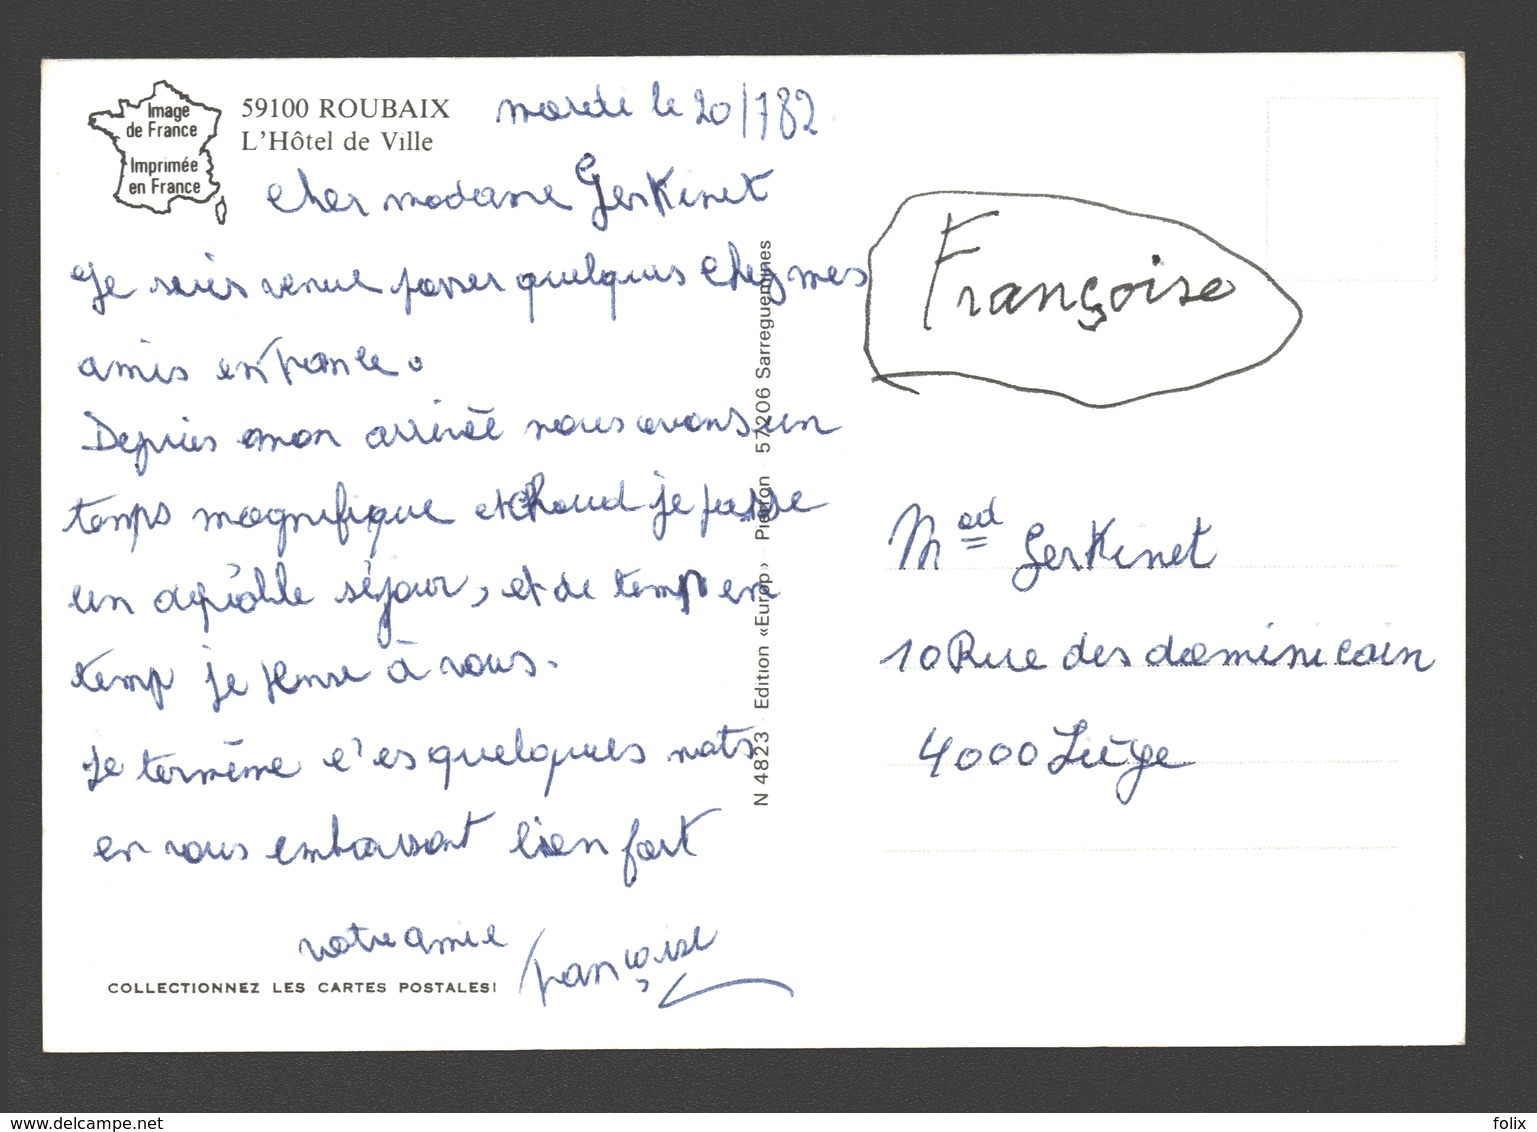 Image
de France
Imprimée
en France
59100 ROUBAIX
L'Hôtel de Ville
mardi le 20/782
cher madame Gerkinet
Je suis venue passer quelques chez mes
amis en france.
Depuis mon arrivée nous avons un
temps magnifique et chaud je passe
un agréable séjour, et de temps en
temp je pense à vous.
je termine c'es quelques mots
en vous embrassant bien fort
votre amie françoise
COLLECTIONNEZ LES CARTES POSTALES!
N 4823 Edition «Europ» Pierron 57206 Sarreguemines
Françoise
Mad Gerkinet
10 Rue des dominicain
4000 Liège
www.delcampe.net
folix